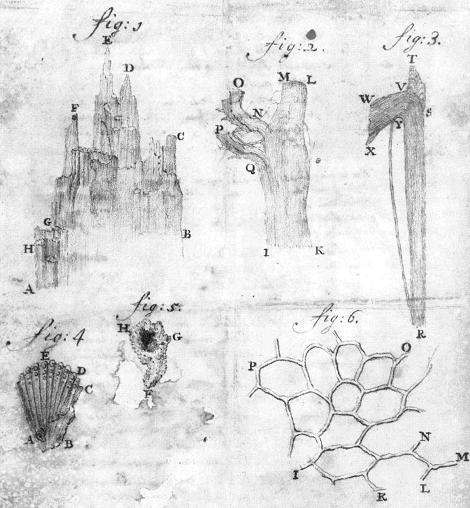 fig: 1
E
D
F
C
G
H
B
A
fig: 2.
O
M
L
N
P
Q
I
K
fig: 3.
T
V
W
S
Y
X
R
fig: 4
E
D
C
A
B
fig: 5.
H
G
F
fig: 6.
O
P
N
M
I
L
K